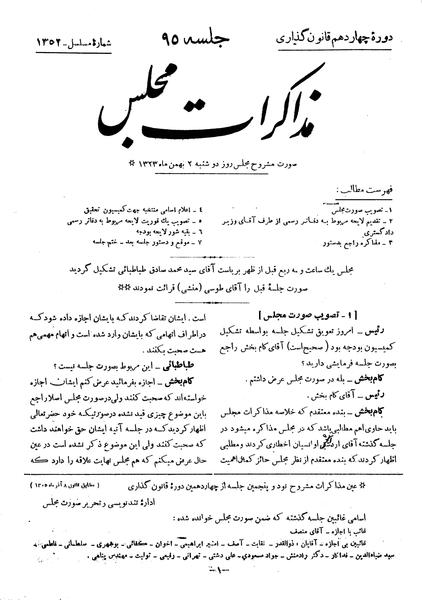 دورهٔ چهاردهم قانون گذاری
جلسه ۹۵
شمارهٔ مسلسل - ۱۳۵۲
مذاکرات مجلس
صورت مشروح مجلس روز دوشنبه ۲ بهمن ماه ۱۳۲۳ *
فهرست مطالب:
۱ - تصویب صورت مجلس
۲ - تقدیم لایحه مربوط به دفاتر رسمی از طرف آقای وزیر دادگستری
۳ - مذاکره راجع بدستور
۴ - اعلام اسامی منتخبه جهت کمیسیون تحقیق
۵ - تصویب یک فوریت لایحه مربوط به دفاتر رسمی
۶ - بقیه شور لایحه بودجه
۷ - موقع و دستور جلسه بعد - ختم جلسه
مجلس یک ساعت و سه ربع قبل از ظهر بریاست آقای سید محمد صادق طباطبائی تشکیل گردید
صورت جلسهٔ قبل را آقای طوسی (منشی) قرائت نمودند **
[۱ - تصویب صورت مجلس]
رئیس - امروز تعویق تشکیل جلسه بواسطه تشکیل
کمیسیون بودجه بود (صحیح است) آقای کام بخش راجع
بصورت جلسه فرمایشی دارید؟
کام بخش - بله در صورت مجلس عرض داشتم.
رئیس - آقای کام بخش.
کام بخش - بنده معتقدم که خلاصه مذاکرات مجلس
باید حاوی اهم مطالبی باشد که در مجلس مذاکره میشود در
جلسه گذشته آقای اوانسیان اخطاری کردند و مطلبی
اظهار کردند که بنده معتقدم از نظر مجلس حائز کمال اهمیت
است. ایشان تقاضا کردند که بایشان اجازه داده شود که
در اطراف اتهامی که بایشان وارد شده است و اتهام مهمی هم
هست صحبت بکنند.
طباطبائی - این مربوط بصورت جلسه نیست؟
کام بخش - اجازه بفرمائید عرض کنم ایشان اجازه
خواسته‌اند که صحبت کنند ولی در صورت مجلس اصلا راجع
باین موضوع چیزی قید نشده در صورتیکه خود حضرتعالی
اظهار کردید که در جلسه آتیه ایشان حق خواهند داشت
که صحبت کنند ولی این موضوع ذکر نشده است در عین
حال عرض میکنم که هم مجلس نهایت علاقه را دارد که
* عین مذاکرات مشروح نود و پنجمین جلسه از چهاردهمین دورهٔ قانون گذاری
(مطابق قانون ۸ آذر ماه ۱۳۰۵)
ادارهٔ تندنویسی و تحریر صورت مجلس
اسامی غائبین جلسه گذشته که ضمن صورت مجلس خوانده شده:
غائب با اجازه - آقای منصف
غائبین بی اجازه - آقایان: ذوالقدر - نقابت - آصف - امیر ابراهیمی - اخوان - کفائی - بوشهری - سلطانی - فاطمی -
سید ضیاءالدین - فداکار - دکتر رادمنش - جواد مسعودی - علی دشتی - تهرانی - رفیعی - تولیت - مهندس پناهی.
-۱-